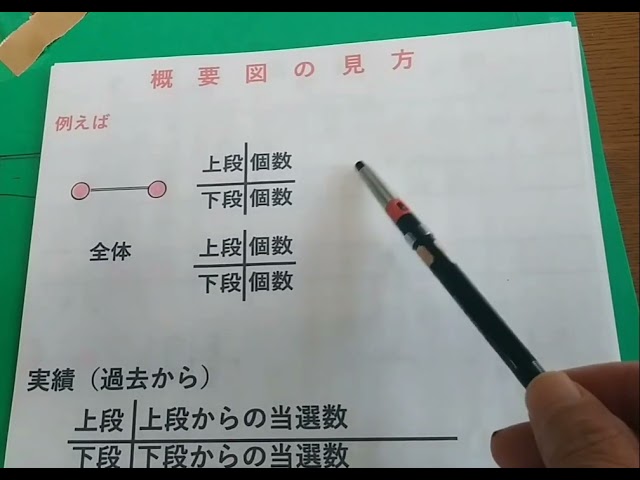 概要図の見方
例えば
上段 個数
下段 個数
全体
上段 個数
下段 個数
実績（過去から）
上段 上段からの当選数
下段 下段からの当選数